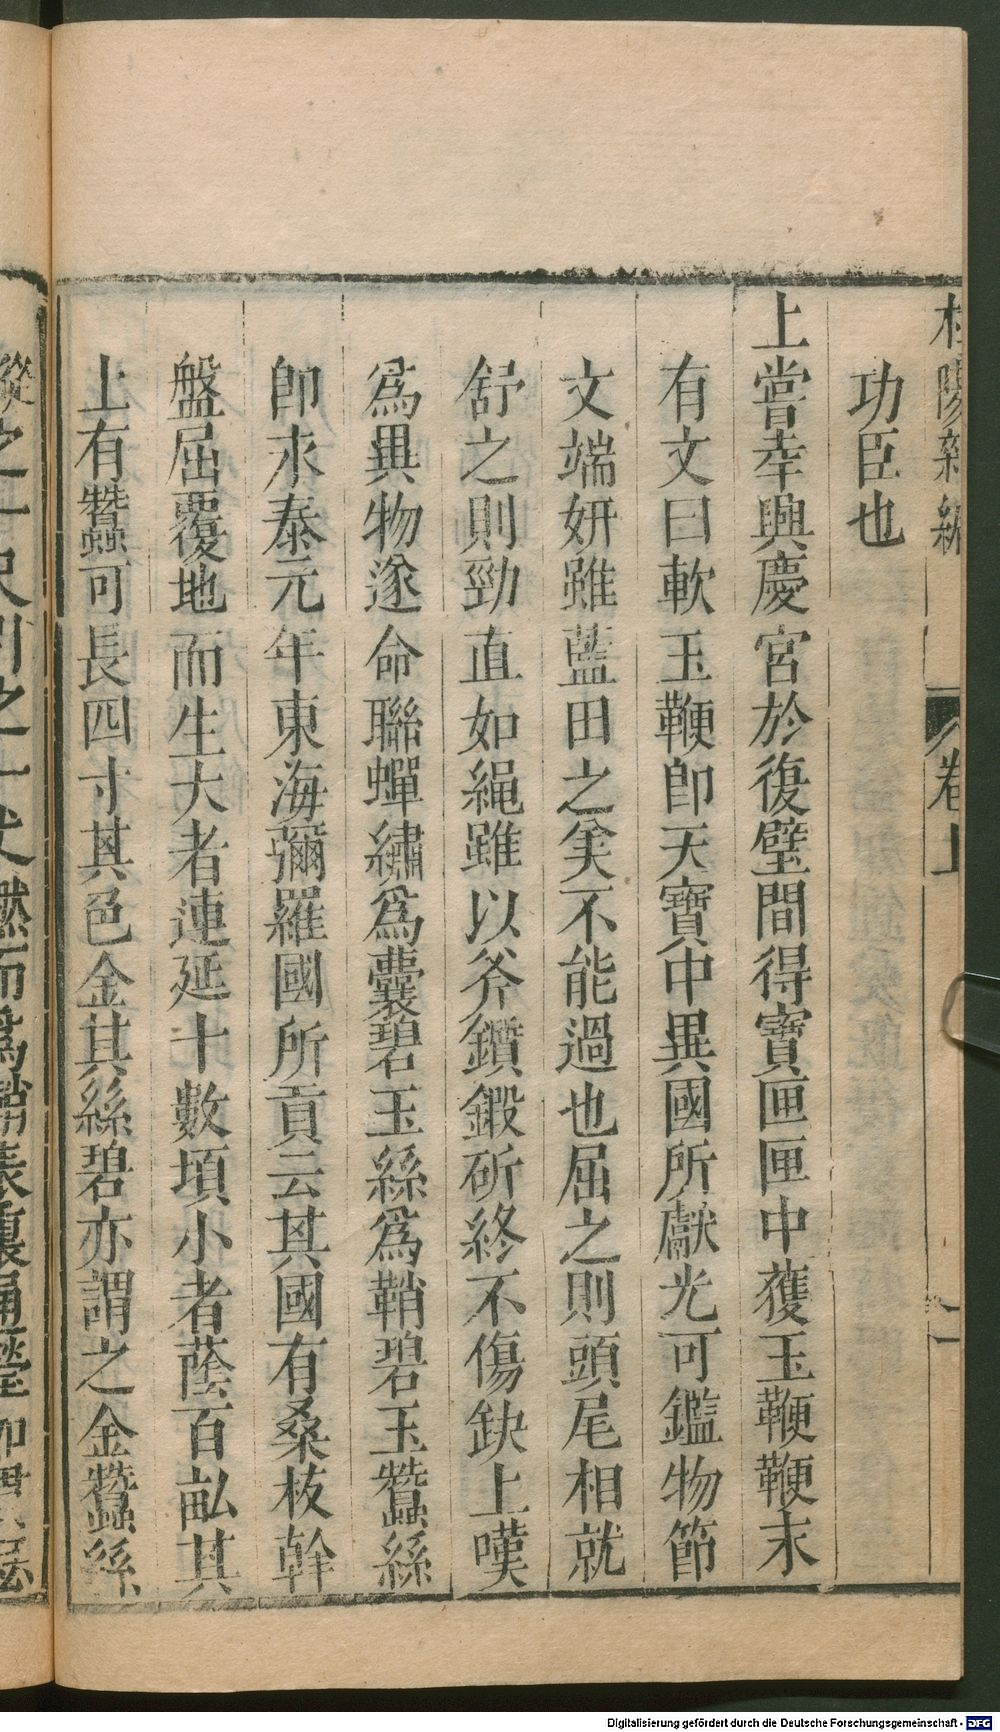 杜陽雜編
卷上
功臣也
上嘗幸興慶宮於復壁間得寶匣匣中獲玉鞭鞭末
有文曰軟玉鞭卽天寶中異國所獻光可鑑物節
文端妍雖藍田之美不能過也屈之則頭尾相就
舒之則勁直如繩雖以斧鑕鍛斫終不傷缺上嘆
爲異物遂命聯蟬繡爲囊碧玉絲爲鞘碧玉蠶絲
卽永泰元年東海彌羅國所貢云其國有桑枝幹
盤屈覆地而生大者連延十數頃小者蔭百畝其
上有蠶可長四寸其色金其絲碧亦謂之金蠶絲
縱之一尺引之一丈撚而爲鞘表裏通瑩
Digitalisierung gefördert durch die Deutsche Forschungsgemeinschaft - DFG